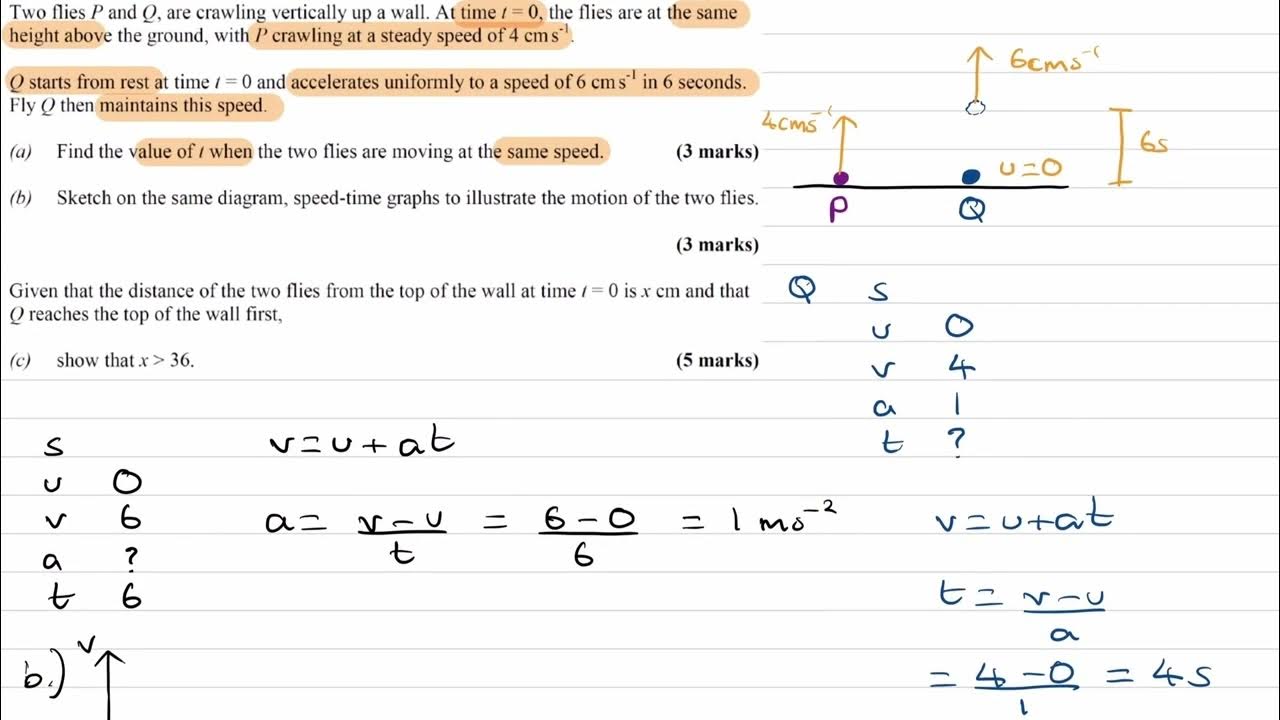 Two flies P and Q, are crawling vertically up a wall. At time t = 0, the flies are at the same
height above the ground, with P crawling at a steady speed of 4 cm s⁻¹.
Q starts from rest at time t = 0 and accelerates uniformly to a speed of 6 cm s⁻¹ in 6 seconds.
Fly Q then maintains this speed.
(a) Find the value of t when the two flies are moving at the same speed. (3 marks)
(b) Sketch on the same diagram, speed-time graphs to illustrate the motion of the two flies.
(3 marks)
Given that the distance of the two flies from the top of the wall at time t = 0 is x cm and that
Q reaches the top of the wall first,
(c) show that x > 36. (5 marks)
6cms⁻¹
4cms⁻¹
6s
u=0
P
Q
Q s
u 0
v 4
a 1
t ?
v=u+at
t = v-u / a
= 4-0 / 1 = 4s
s
u 0
v 6
a ?
t 6
v=u+at
a = v-u / t = 6-0 / 6 = 1 ms⁻²
b.) v